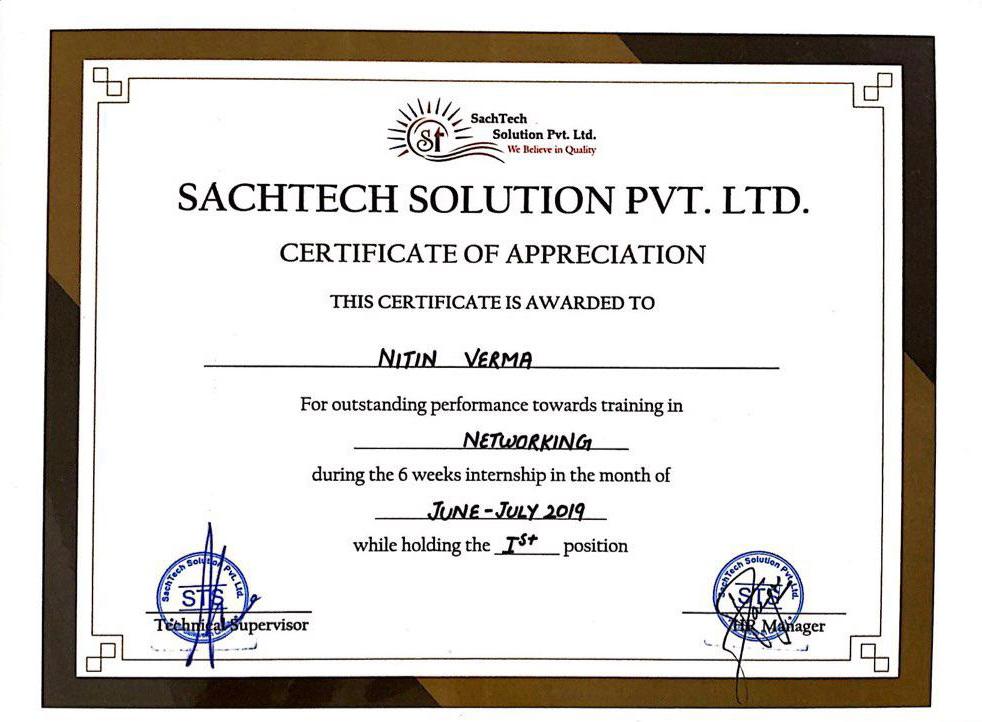 St
SachTech
Solution Pvt. Ltd.
We Believe in Quality
SACHTECH SOLUTION PVT. LTD.
CERTIFICATE OF APPRECIATION
THIS CERTIFICATE IS AWARDED TO
NITIN VERMA
For outstanding performance towards training in
NETWORKING
during the 6 weeks internship in the month of
JUNE-JULY 2019
while holding the Ist position
SachTech Solution Pvt. Ltd.
STS
Technical Supervisor
SachTech Solution Pvt. Ltd.
STS
HR Manager